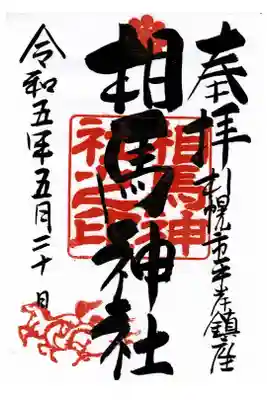 奉拝
札幌市平岸鎮座
相馬神社
相馬神社之印
令和五年五月二十日